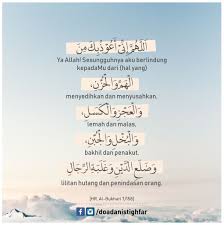 اللَّهُمَّ إِنِّي أَعُوذُ بِكَ مِنَ
Ya Allah! Sesungguhnya aku berlindung
kepadaMu dari (hal yang)
الْهَمِّ وَالْحُزْنِ،
menyedihkan dan menyusahkan,
وَالْعَجْزِ وَالْكَسَلِ،
lemah dan malas,
وَالْبُخْلِ وَالْجُبْنِ،
bakhil dan penakut,
وَضَلَعِ الدَّيْنِ وَغَلَبَةِ الرِّجَالِ
lilitan hutang dan penindasan orang.
(HR. Al-Bukhari 7/158)
/doadanistighfar